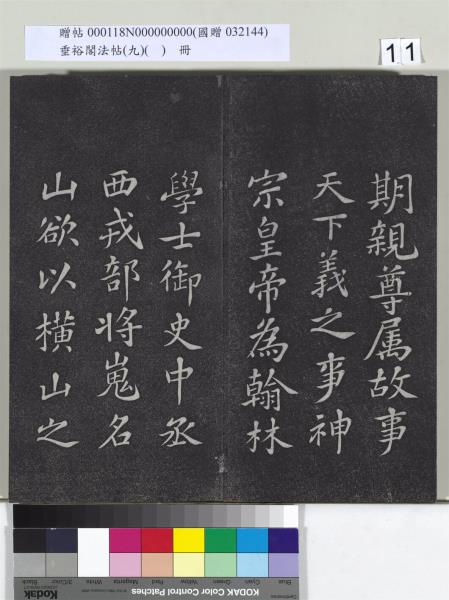 贈帖 000118N000000000(國贈 032144)
垂裕閣法帖(九)( ) 冊
11
期親尊属故事
天下義之事神
宗皇帝為翰林
學士御史中丞
西戎部将嵬名
山欲以橫山之
Blue
Cyan
Green
Yellow
Red
Magenta
White
3/Color
Black
KODAK Color Control Patches
Kodak